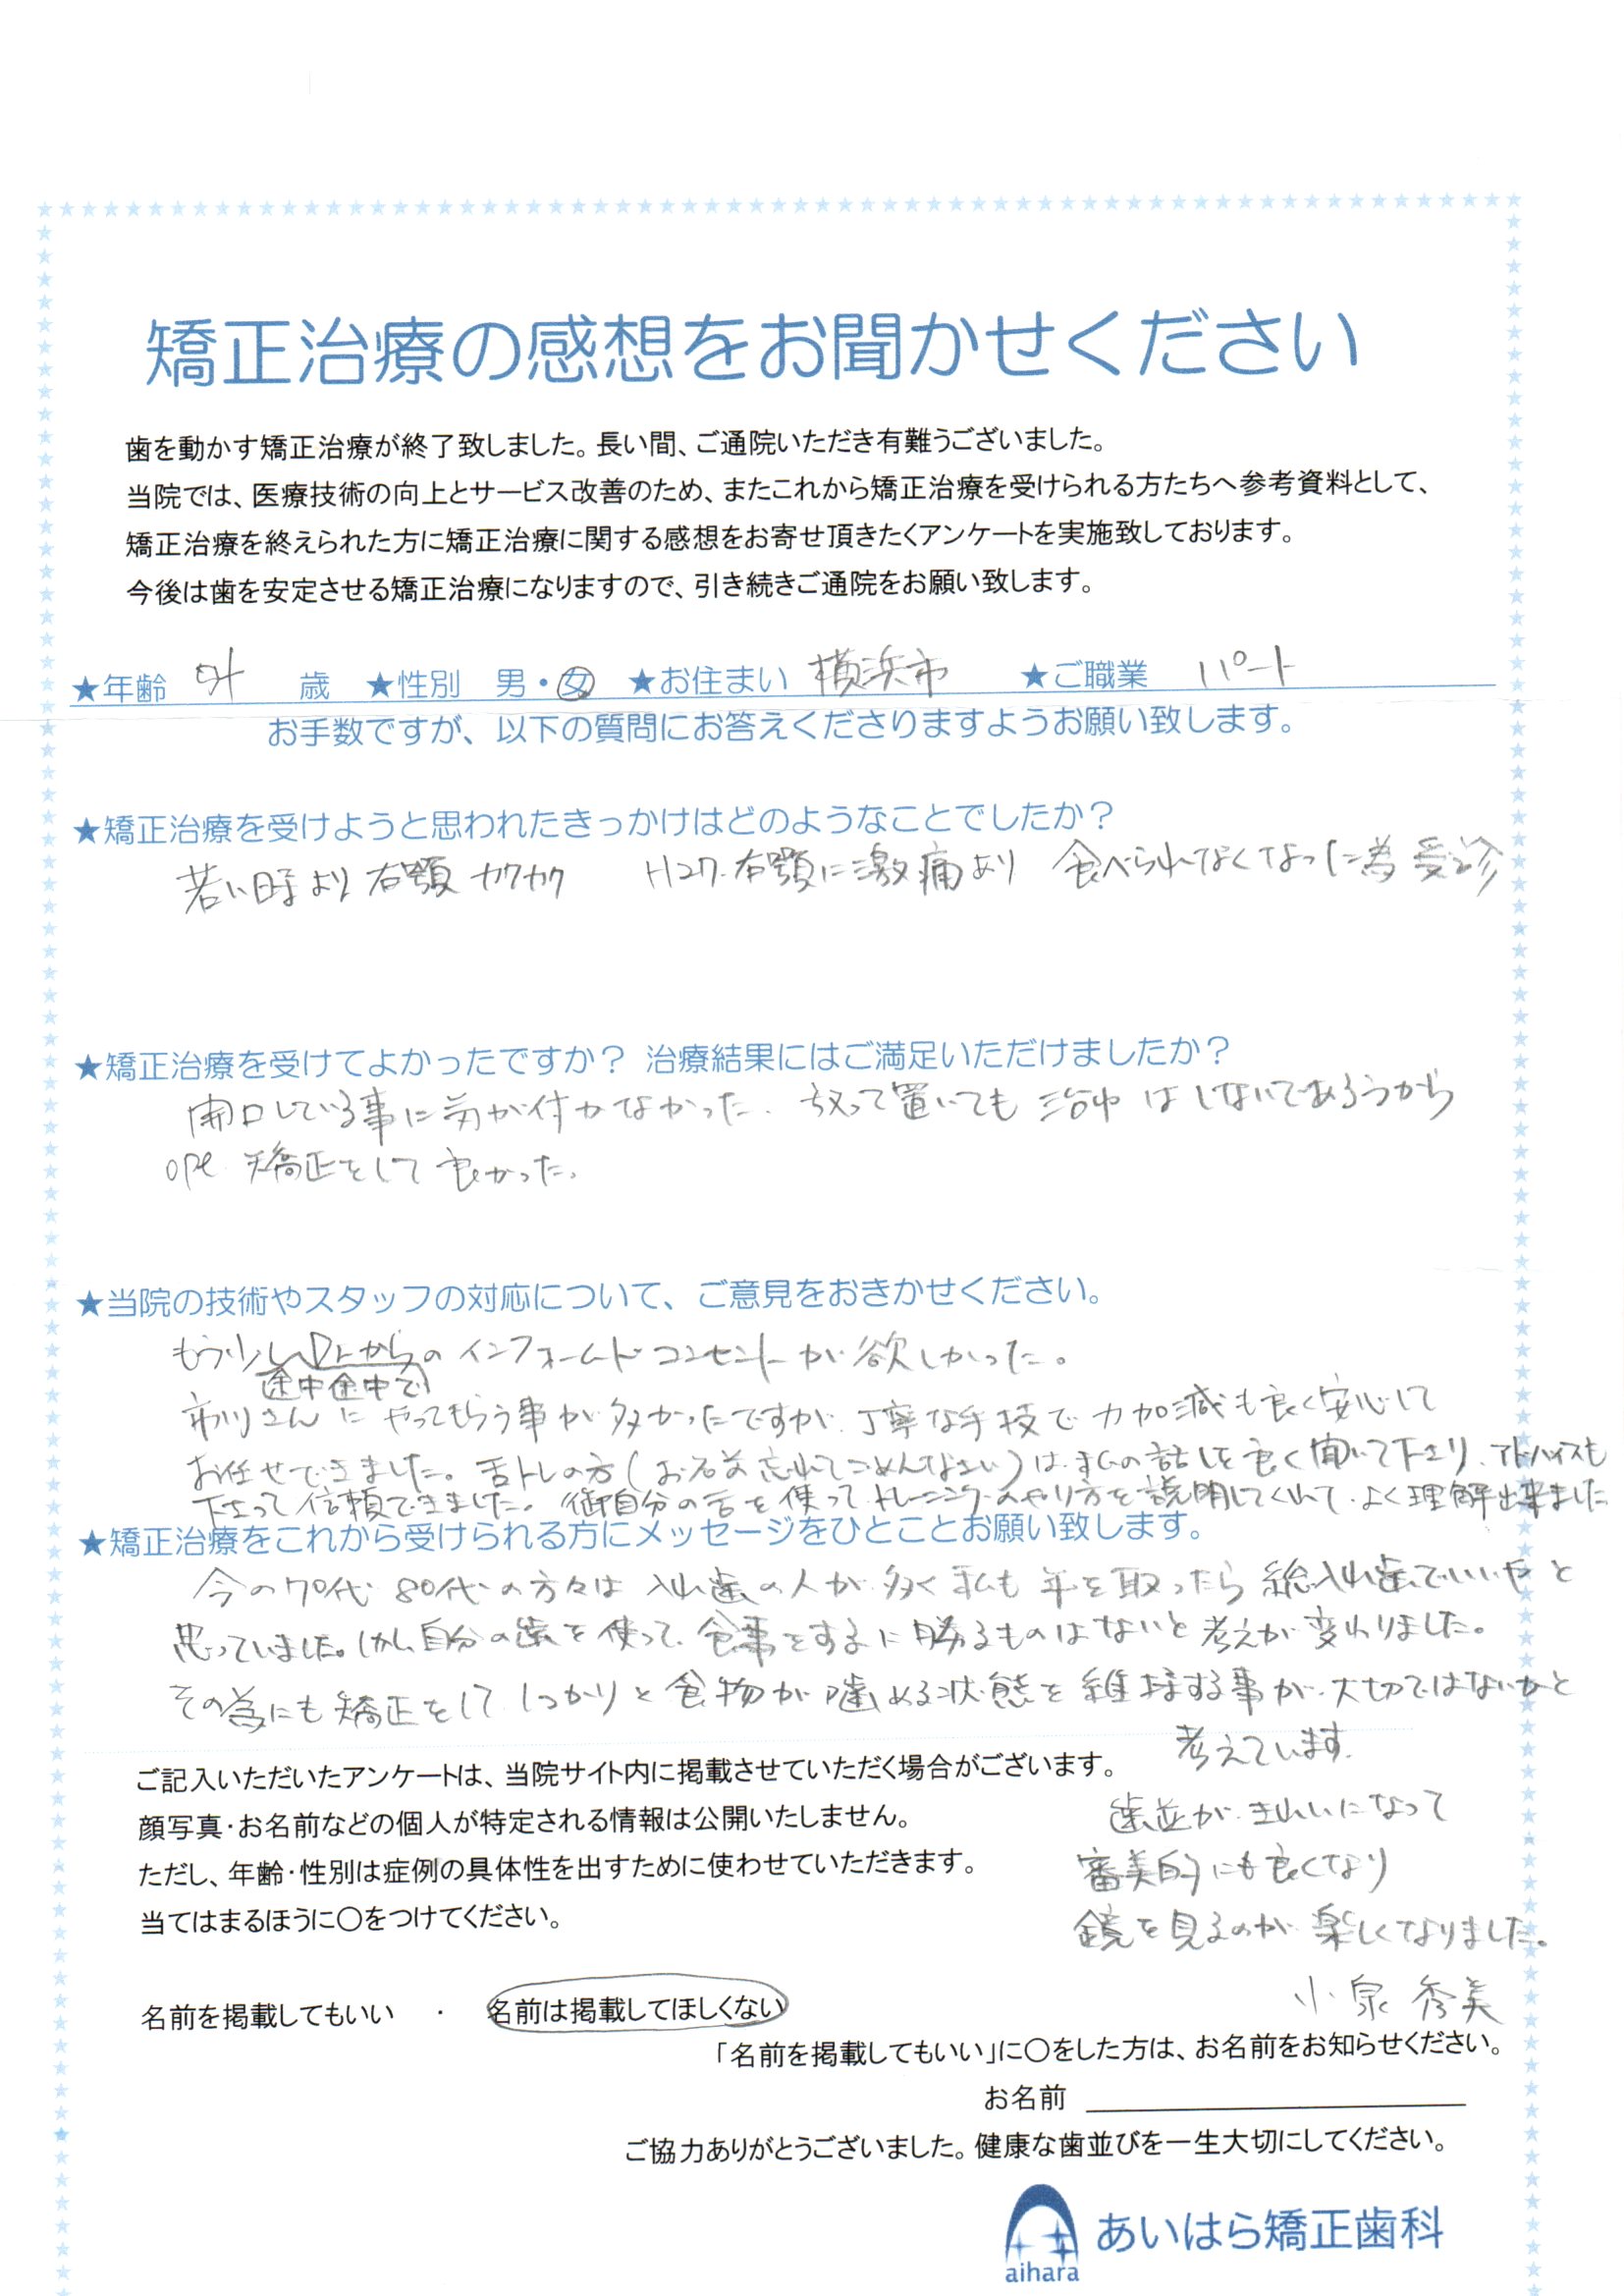 矯正治療の感想をお聞かせください
歯を動かす矯正治療が終了致しました。長い間、ご通院いただき有難うございました。
当院では、医療技術の向上とサービス改善のため、またこれから矯正治療を受けられる方たちへ参考資料として、
矯正治療を終えられた方に矯正治療に関する感想をお寄せ頂きたくアンケートを実施致しております。
今後は歯を安定させる矯正治療になりますので、引き続きご通院をお願い致します。
★年齢 歳 ★性別 男・女 ★お住まい 横浜市 ★ご職業 パート
お手数ですが、以下の質問にお答えくださりますようお願い致します。
★矯正治療を受けようと思われたきっかけはどのようなことでしたか？
若い時より右顎カクカク H27.右顎に激痛より 食べられなくなった為受診
★矯正治療を受けてよかったですか？ 治療結果にはご満足いただけましたか？
開口している事に気が付かなかった。放って置いても治ゆはしないであろうから
ope 矯正をして良かった。
★当院の技術やスタッフの対応について、ご意見をおきかせください。
もう少しDrからのインフォームドコンセントが欲しかった。
途中途中で
さんにやってもらう事が多かったですが、丁寧な手技で力加減も良く安心して
お任せできました。舌トレの方(お名前忘れてごめんなさい)は、私の話しを良く聞いて下さり、アドバイスも
下さって信頼できました。御自分の舌を使ってトレーニングのやり方を説明してくれて、よく理解出来ました
★矯正治療をこれから受けられる方にメッセージをひとことお願い致します。
今の70代 80代の方々は入れ歯の人が多く私も年を取ったら総入れ歯でいいやと
思っていました。しかし自分の歯を使って食事をするに勝るものはないと考えが変わりました。
その為にも矯正をして、しっかりと食物が噛める状態を維持する事が大切ではないかと
考えています。
歯並がきれいになって
審美的にも良くなり
鏡を見るのが楽しくなりました。
小泉 秀美
ご記入いただいたアンケートは、当院サイト内に掲載させていただく場合がございます。
顔写真・お名前などの個人が特定される情報は公開いたしません。
ただし、年齢・性別は症例の具体性を出すために使わせていただきます。
当てはまるほうに〇をつけてください。
名前を掲載してもいい ・ 名前は掲載してほしくない
「名前を掲載してもいい」に〇をした方は、お名前をお知らせください。
お名前
ご協力ありがとうございました。健康な歯並びを一生大切にしてください。
aihara あいはら矯正歯科